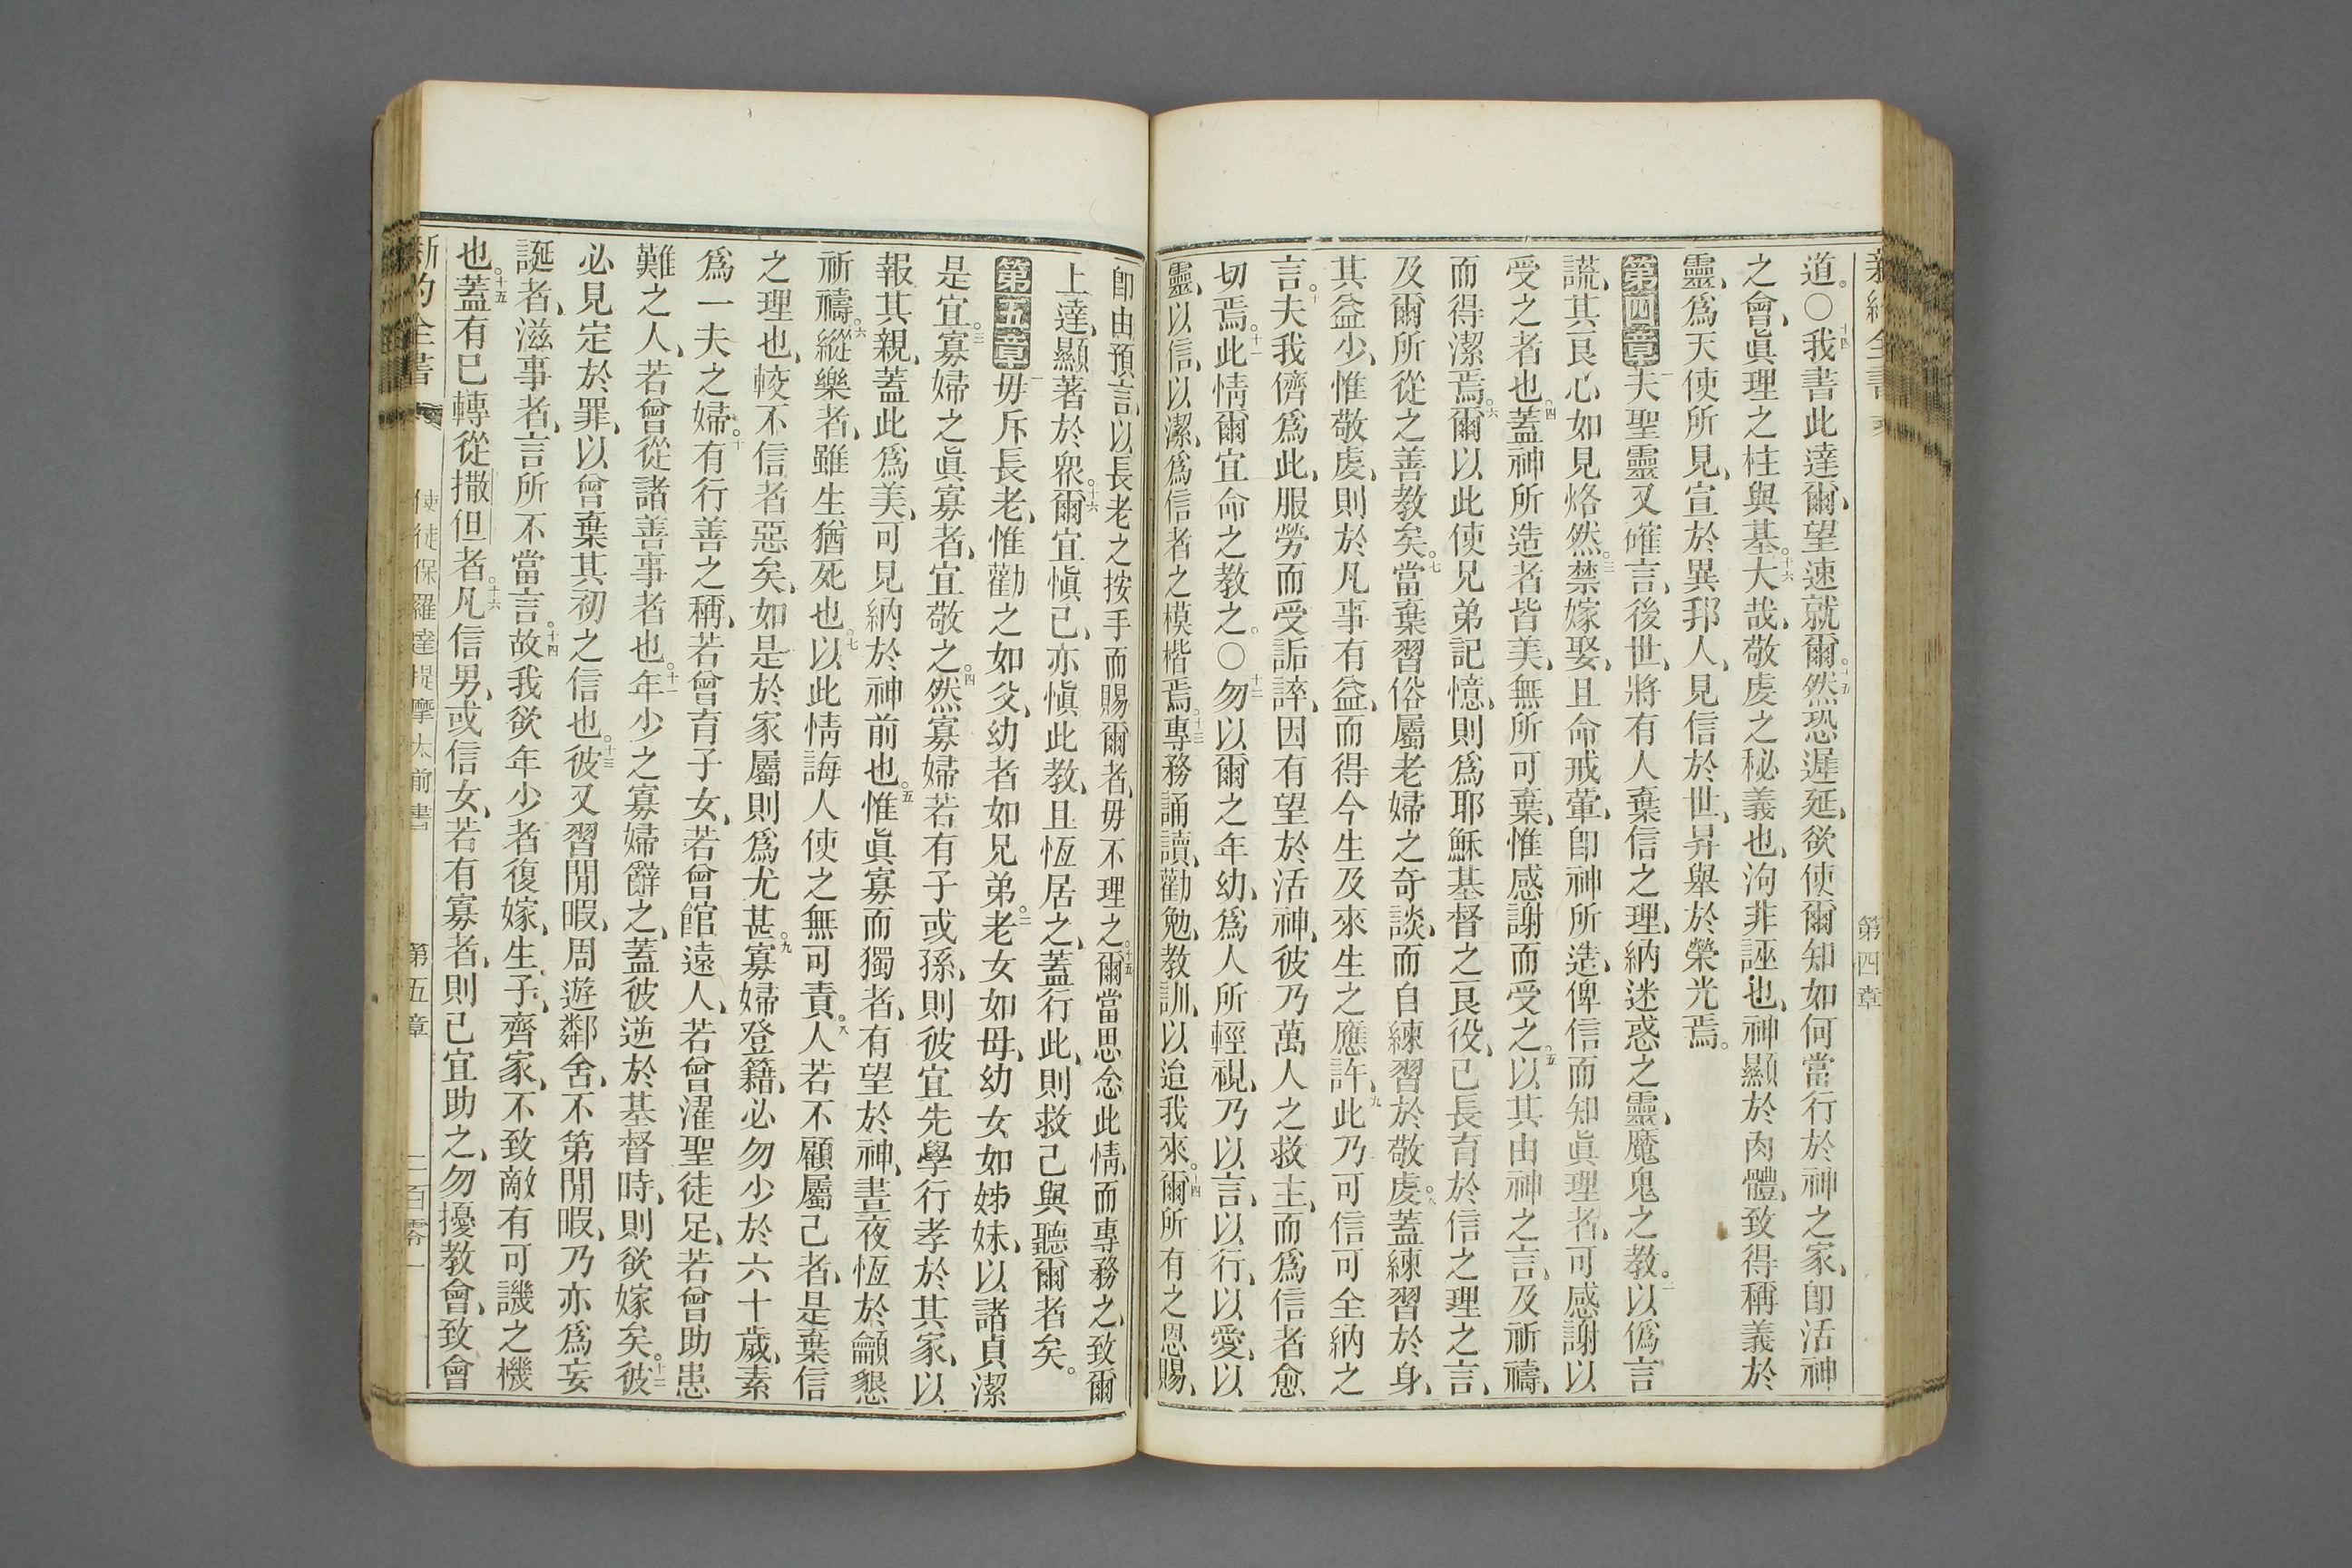 第四章
道。○十四我書此達爾、望速就爾。十五然恐遲延、欲使爾知如何當行於神之家、卽活神
之會、眞理之柱與基。十六大哉、敬虔之秘義也、洵非誣也、神顯於肉體、致得稱義於
靈、爲天使所見、宣於異邦人、見信於世、昇舉於榮光焉。
第四章一夫聖靈又確言、後世、將有人棄信之理、納迷惑之靈、魔鬼之教。二以僞言
謊、其良心如見烙然。三禁嫁娶、且命戒葷、卽神所造、俾信而知眞理者、可感謝以
受之者也。四蓋神所造者皆美、無所可棄、惟感謝而受之。五以其由神之言、及祈禱、
而得潔焉。六爾以此使兄弟記憶、則爲耶穌基督之良役、已長育於信之理之言、
及爾所從之善教矣。七當棄習俗屬老婦之奇談、而自練習於敬虔。八蓋練習於身、
其益少、惟敬虔、則於凡事有益、而得今生及來生之應許、九此乃可信可全納之
言。十夫我儕爲此、服勞而受詬誶、因有望於活神、彼乃萬人之救主、而爲信者愈
切焉。十一此情爾宜命之教之。○十二勿以爾之年幼、爲人所輕視、乃以言、以行、以愛、以
靈、以信、以潔、爲信者之模楷焉。十三專務誦讀、勸勉、教訓、以迨我來。十四爾所有之恩賜、
卽由預言、以長老之按手而賜爾者、毋不理之。十五爾當思念此情、而專務之、致爾
上達、顯著於衆。十六爾宜愼己、亦愼此教、且恆居之、蓋行此、則救己與聽爾者矣。
第五章一毋斥長老、惟勸之如父、幼者如兄弟。二老女如母、幼女如姊妹、以諸貞潔
是宜。三寡婦之眞寡者、宜敬之。四然寡婦若有子或孫、則彼宜先學行孝於其家、以
報其親、蓋此爲美、可見納於神前也。五惟眞寡而獨者、有望於神、晝夜恆於籲懇
祈禱。六縱樂者、雖生猶死也。七以此情誨人使之無可責。八人若不顧屬己者、是棄信
之理也、較不信者惡矣、如是於家屬則爲尤甚。九寡婦登籍、必勿少於六十歲、素
爲一夫之婦。十有行善之稱、若曾育子女、若曾館遠人、若曾濯聖徒足、若曾助患
難之人、若曾從諸善事者也。十一年少之寡婦辭之、蓋彼逆於基督時、則欲嫁矣。十二彼
必見定於罪、以曾棄其初之信也。十三彼又習閒暇、周遊鄰舍、不第閒暇、乃亦爲妄
誕者、滋事者、言所不當言。十四故我欲年少者復嫁、生子、齊家、不致敵有可譏之機
也。十五蓋有已轉從撒但者。十六凡信男、或信女、若有寡者、則己宜助之、勿擾教會、致會
新約全書 使徒保羅達提摩太前書 第五章 二百零一